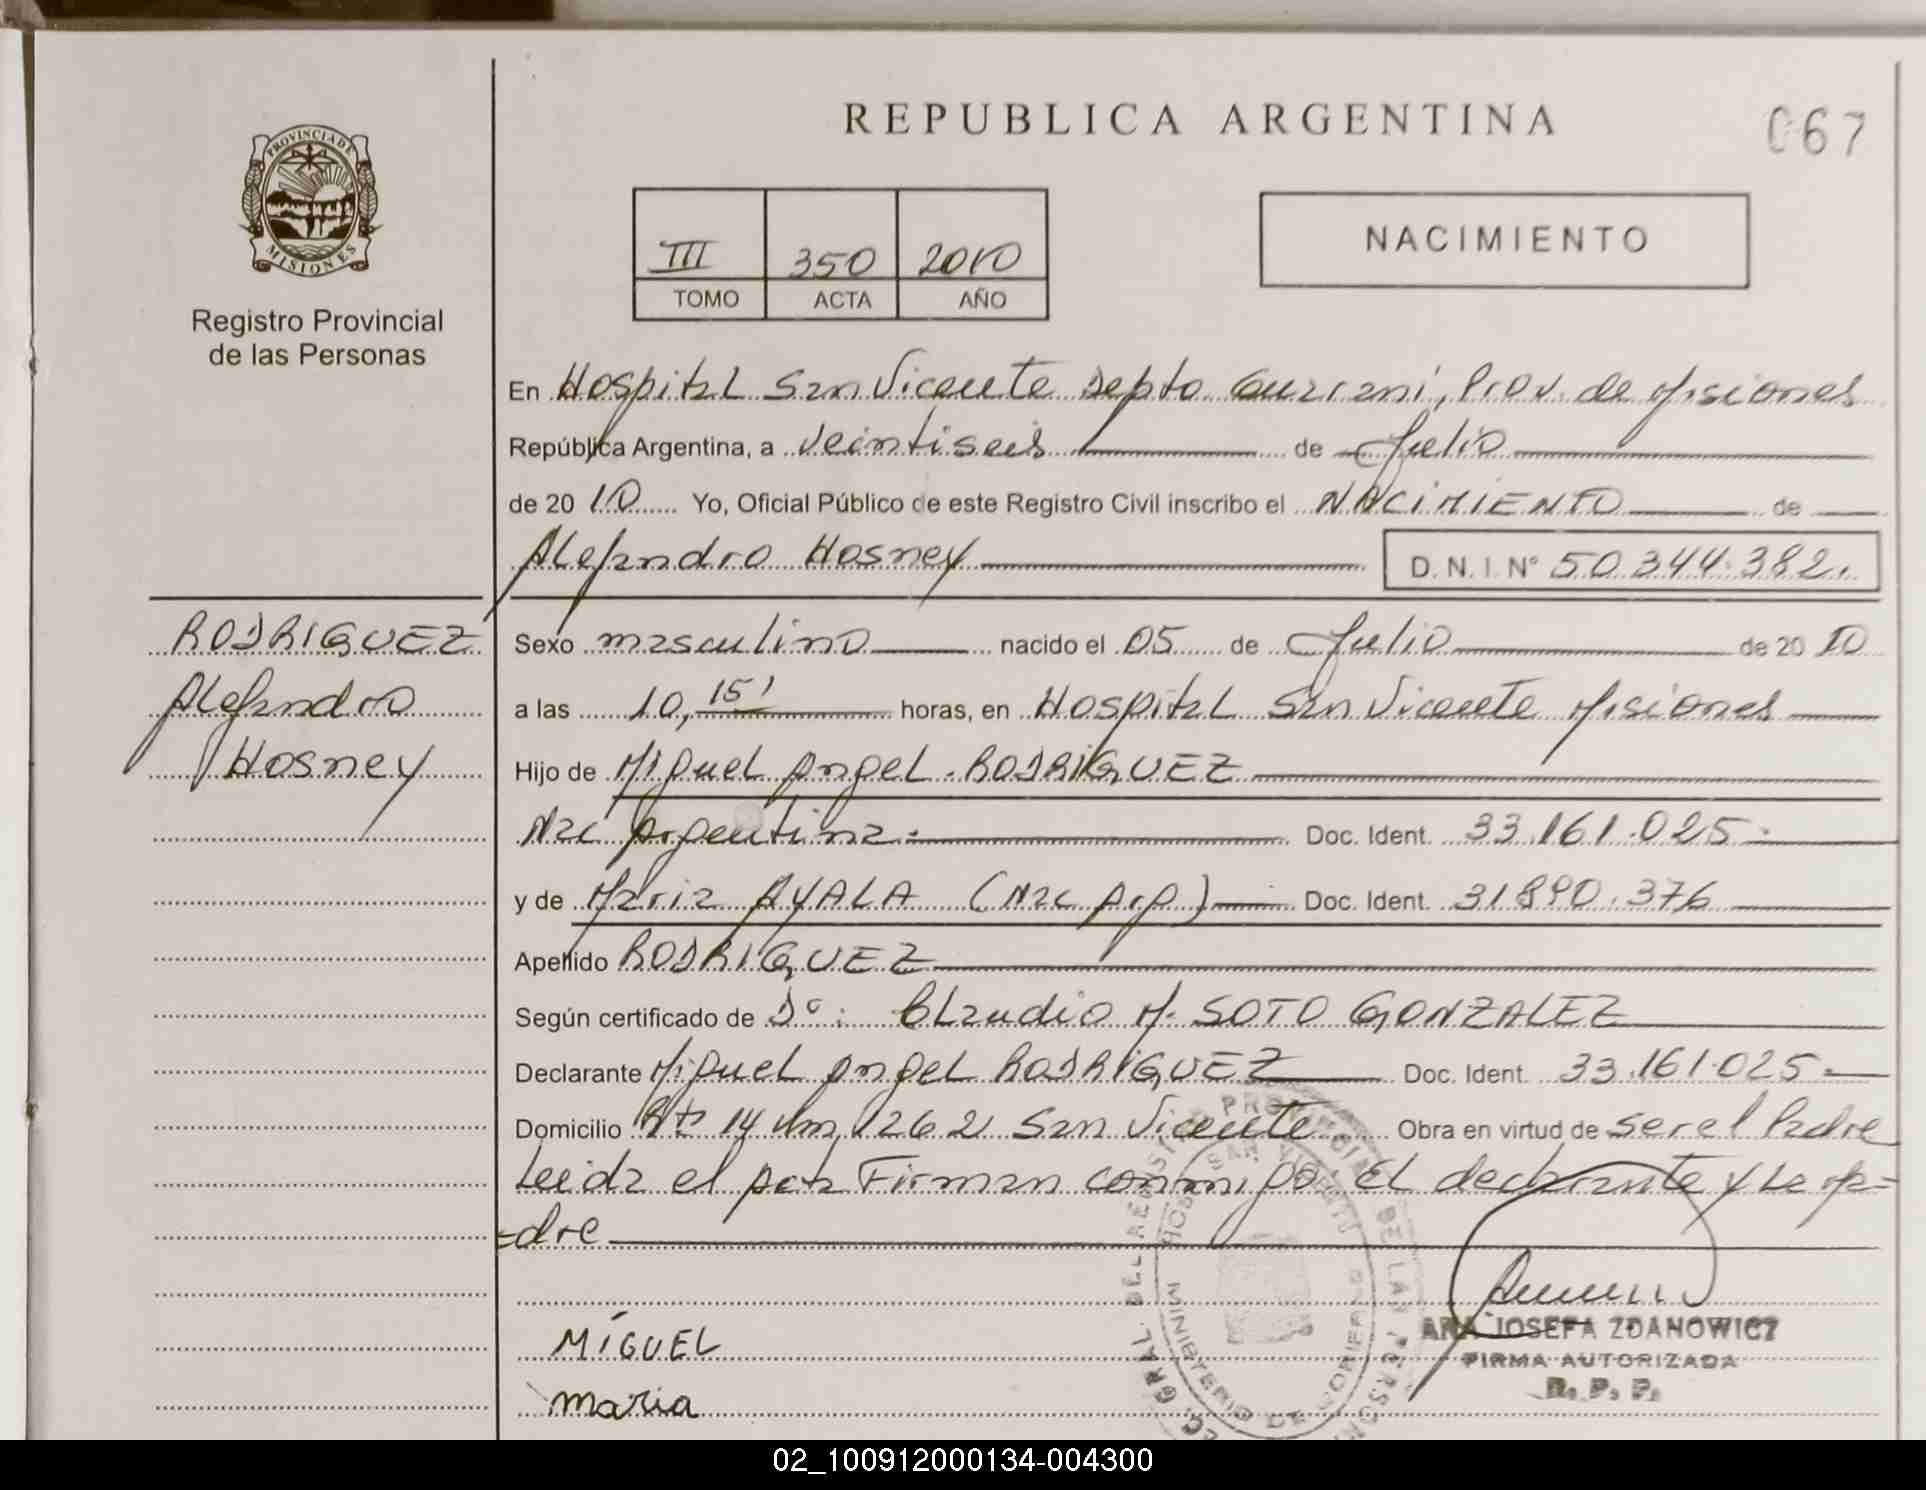 REPUBLICA ARGENTINA
067
PROVINCIA DE
MISIONES
Registro Provincial
de las Personas
III 350 2010
TOMO ACTA AÑO
NACIMIENTO
En Hospital San Vicente Depto Guarani, Prov. de Misiones
República Argentina, a veintiseis de Julio
de 20 10 Yo, Oficial Público de este Registro Civil inscribo el NACIMIENTO de
Alejandro Hosney D.N.I. N° 50.344.382.
RODRIGUEZ
Alejandro
Hosney
Sexo masculino nacido el 05 de Julio de 20 10
a las 10, 15' horas, en Hospital San Vicente Misiones
Hijo de Miguel Angel RODRIGUEZ
Nac Argentina Doc. Ident. 33.161.025
y de Maria AYALA (Nac Arg) Doc. Ident. 31890.376
Apellido RODRIGUEZ
Según certificado de Claudio M. SOTO GONZALEZ
Declarante Miguel Angel RODRIGUEZ Doc. Ident. 33.161.025
Domicilio Rta 14 Km 1262 San Vicente Obra en virtud de ser el Padre
Leida el Acta Firman conmigo El declarante y La Ma=
=dre
MIGUEL
maria
ANA JOSEFA ZDANOWICZ
FIRMA AUTORIZADA
R. P. P.
MINISTERIO DE GOBIERNO
02_100912000134-004300